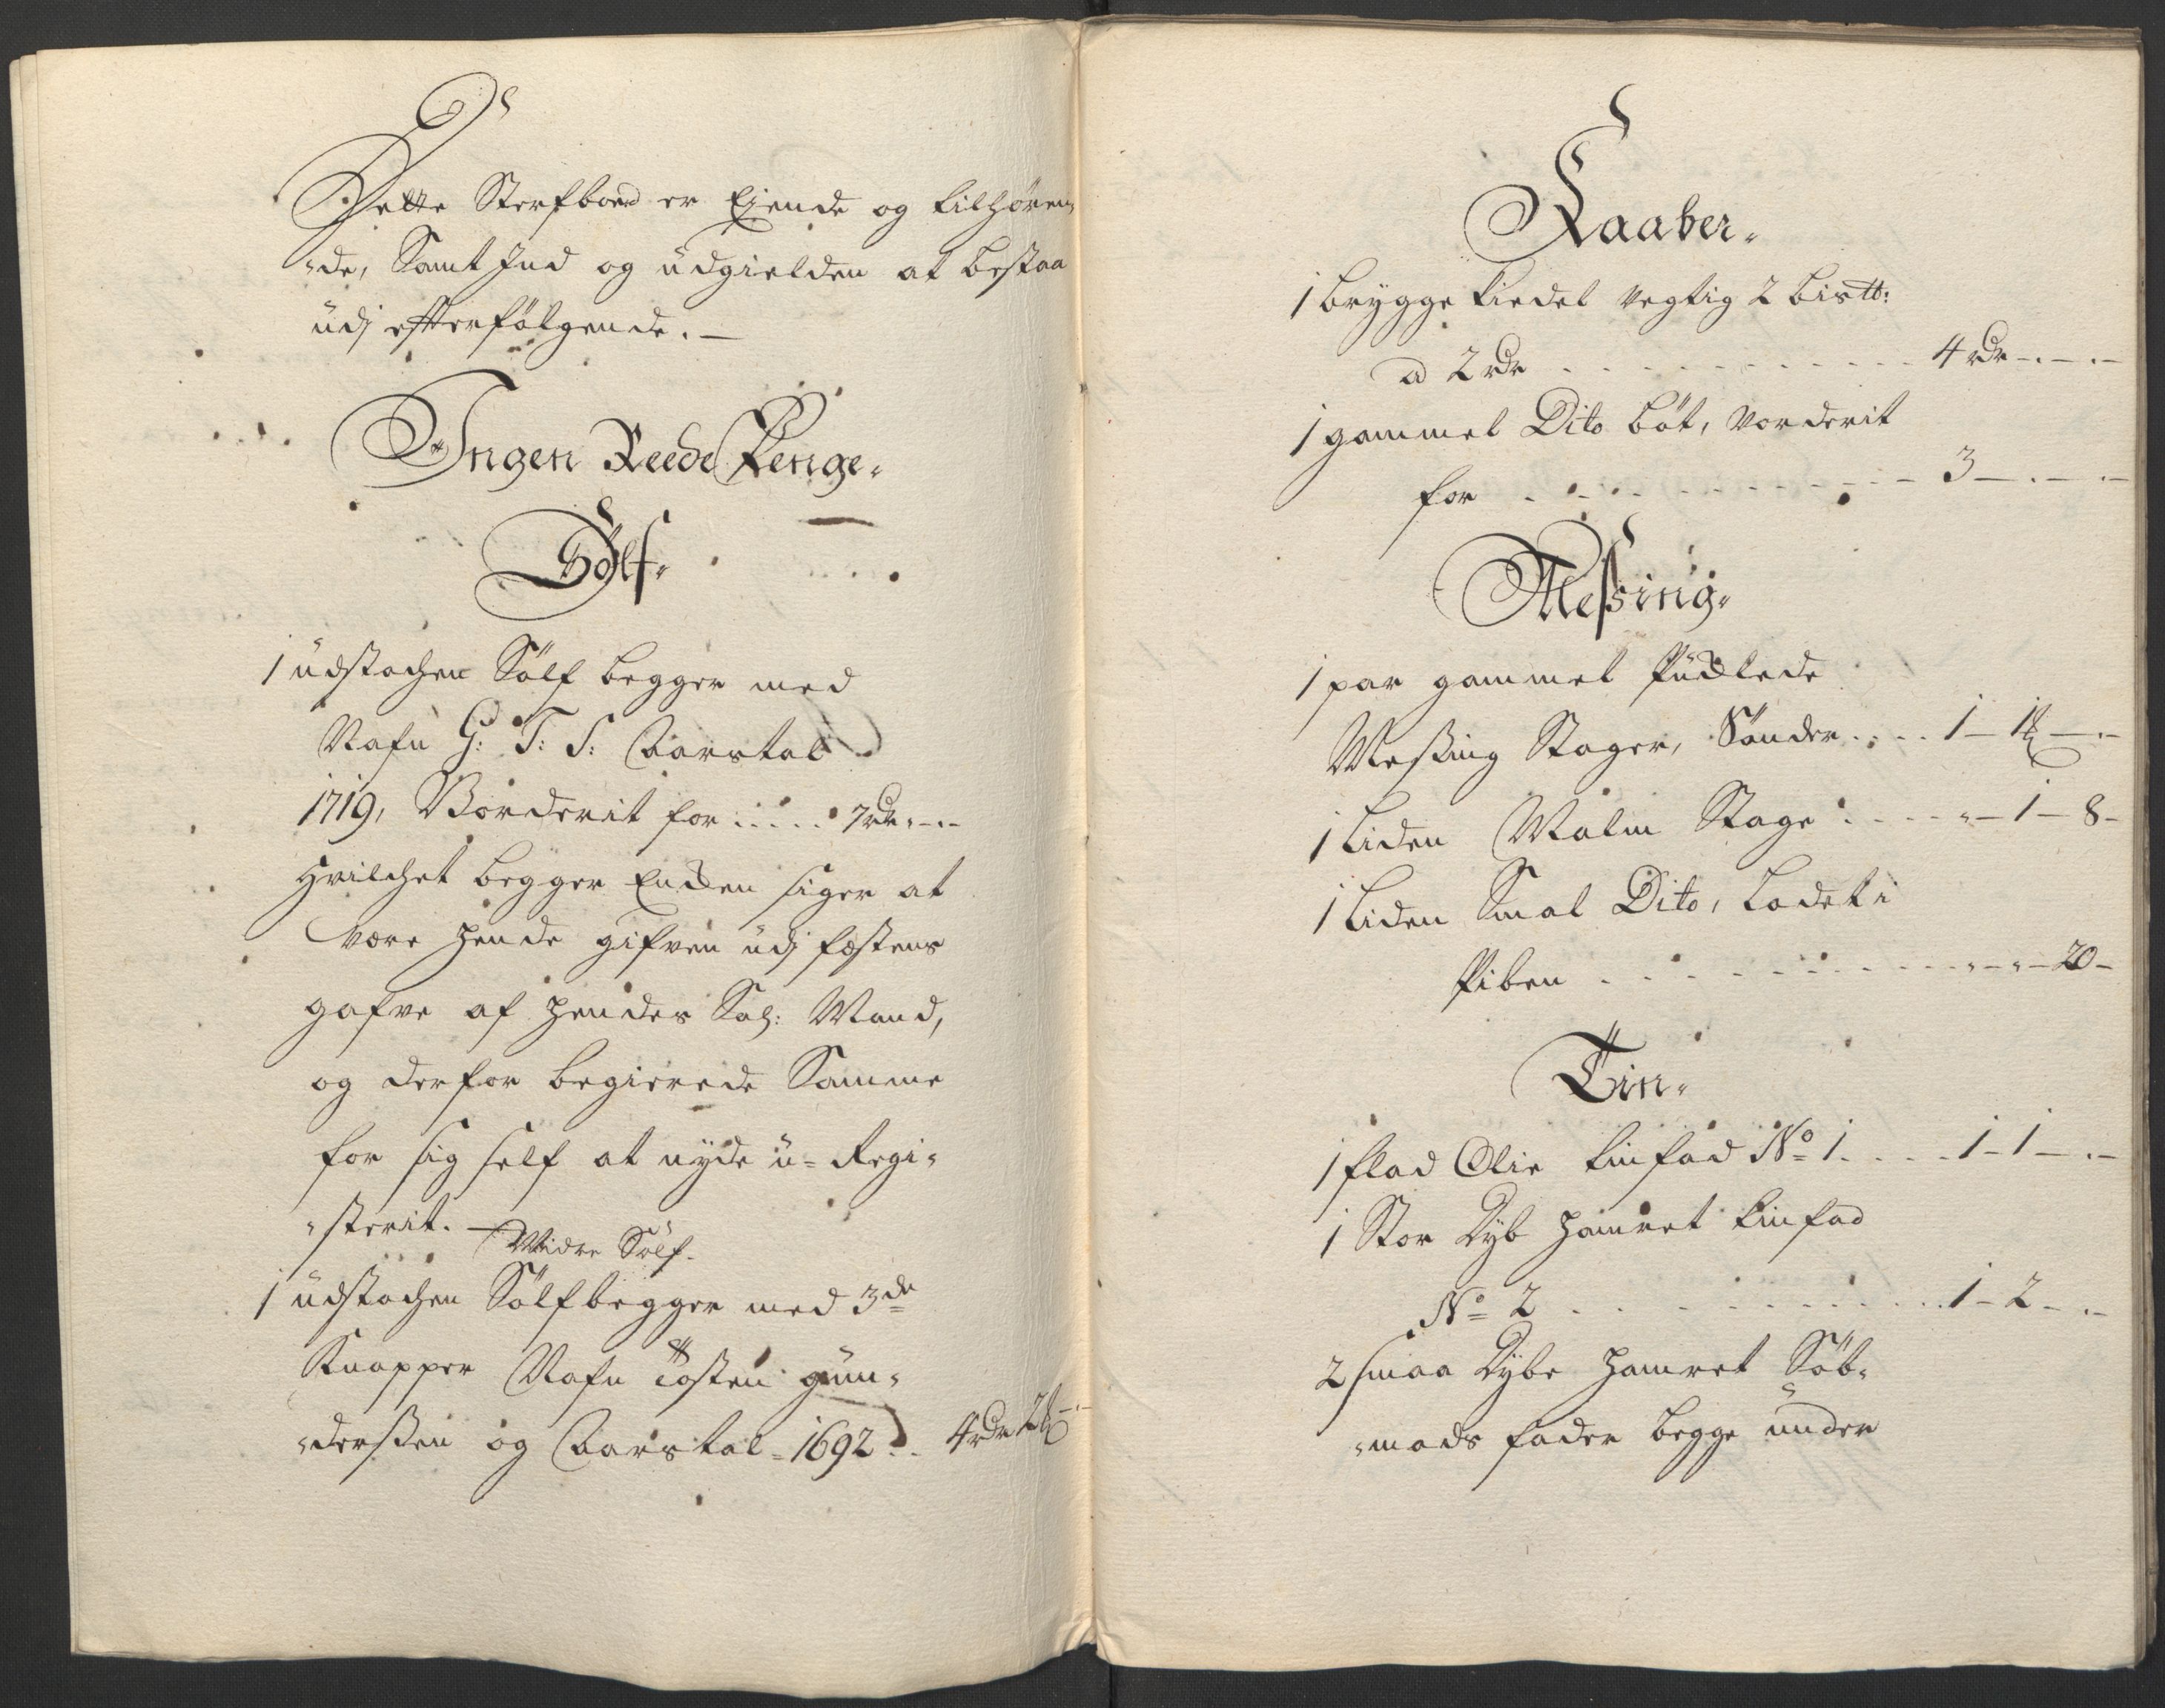 Dette Sterfboed er Ejende og tilhøren,
„de, Samt Ind og üdgielden at bestaa
üdj effterfølgende. —
Ingen Reede Penge„
Sölf„
1 üdstachen Sölf begger med
Nafn G: T: S: Aarstal
1719, Vorderit for ..... 7 rdr „ – „ –
Hvilchet begger Encken siger at
være hende gifven üdj fæstens
gafve af hendes Sal: Mand,
og derfor begierede Samme
for sig self at nyde ü= Regi„
„sterit. —
Widre Sölf.
1 üdstachen Sölfbegger med 3de
Knapper Nafn östen gün„
„derßen og Aarstal = 1692 .. 4 rdr 2 ₰ –
Kaaber„
1 brygge kiedel vegtig 2 bis℔:
a 2 rdr . . . . . . . . . . 4 rdr – . – . –
1 gammel Dito böt, Vorderit
for . . . . . . . . . . 3 – . – . –
Meßing„
1 par gammel Pücklede
Meßing Stager, Sönder . . . . 1 – 1 ₰ – . –
1 liden Malm Stage . . . . „ – 1 – 8 –
1 liden Smal Dito, Lodet i
Piben . . . . . . . . . . „ – „ – 20 –
Tin„
1 flad Olie tinfad No 1 . . . . 1 – 1 – . –
1 Stor Dyb hamret tinfad
No 2 . . . . . . . . . . 1 – 2 – . –
2 smaa Dybe hamret Söb„
„mads fader begge ünder